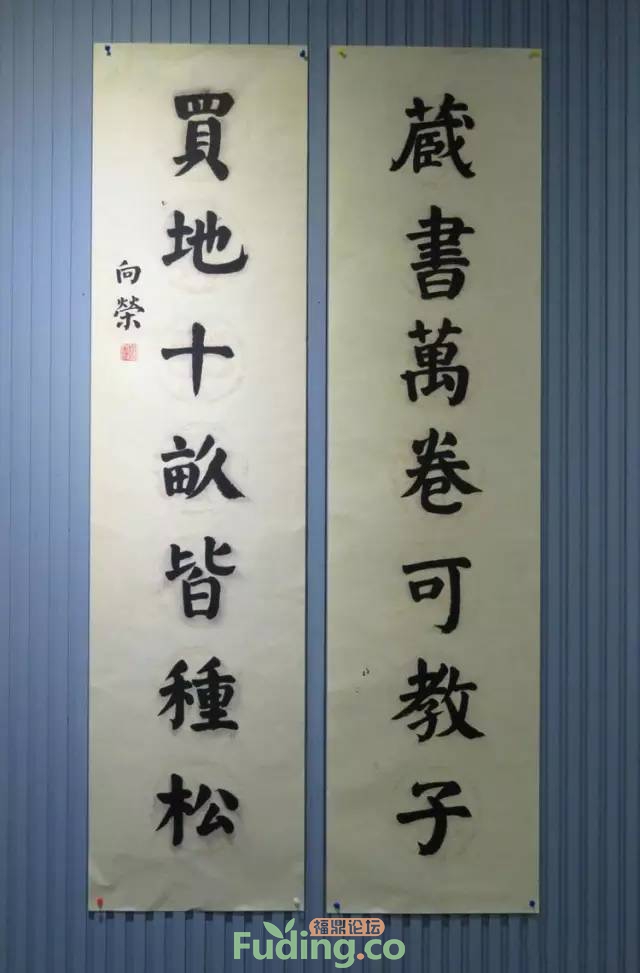 蔵書萬卷可教子
買地十畝皆種松
向榮
福鼎论坛
Fuding.co